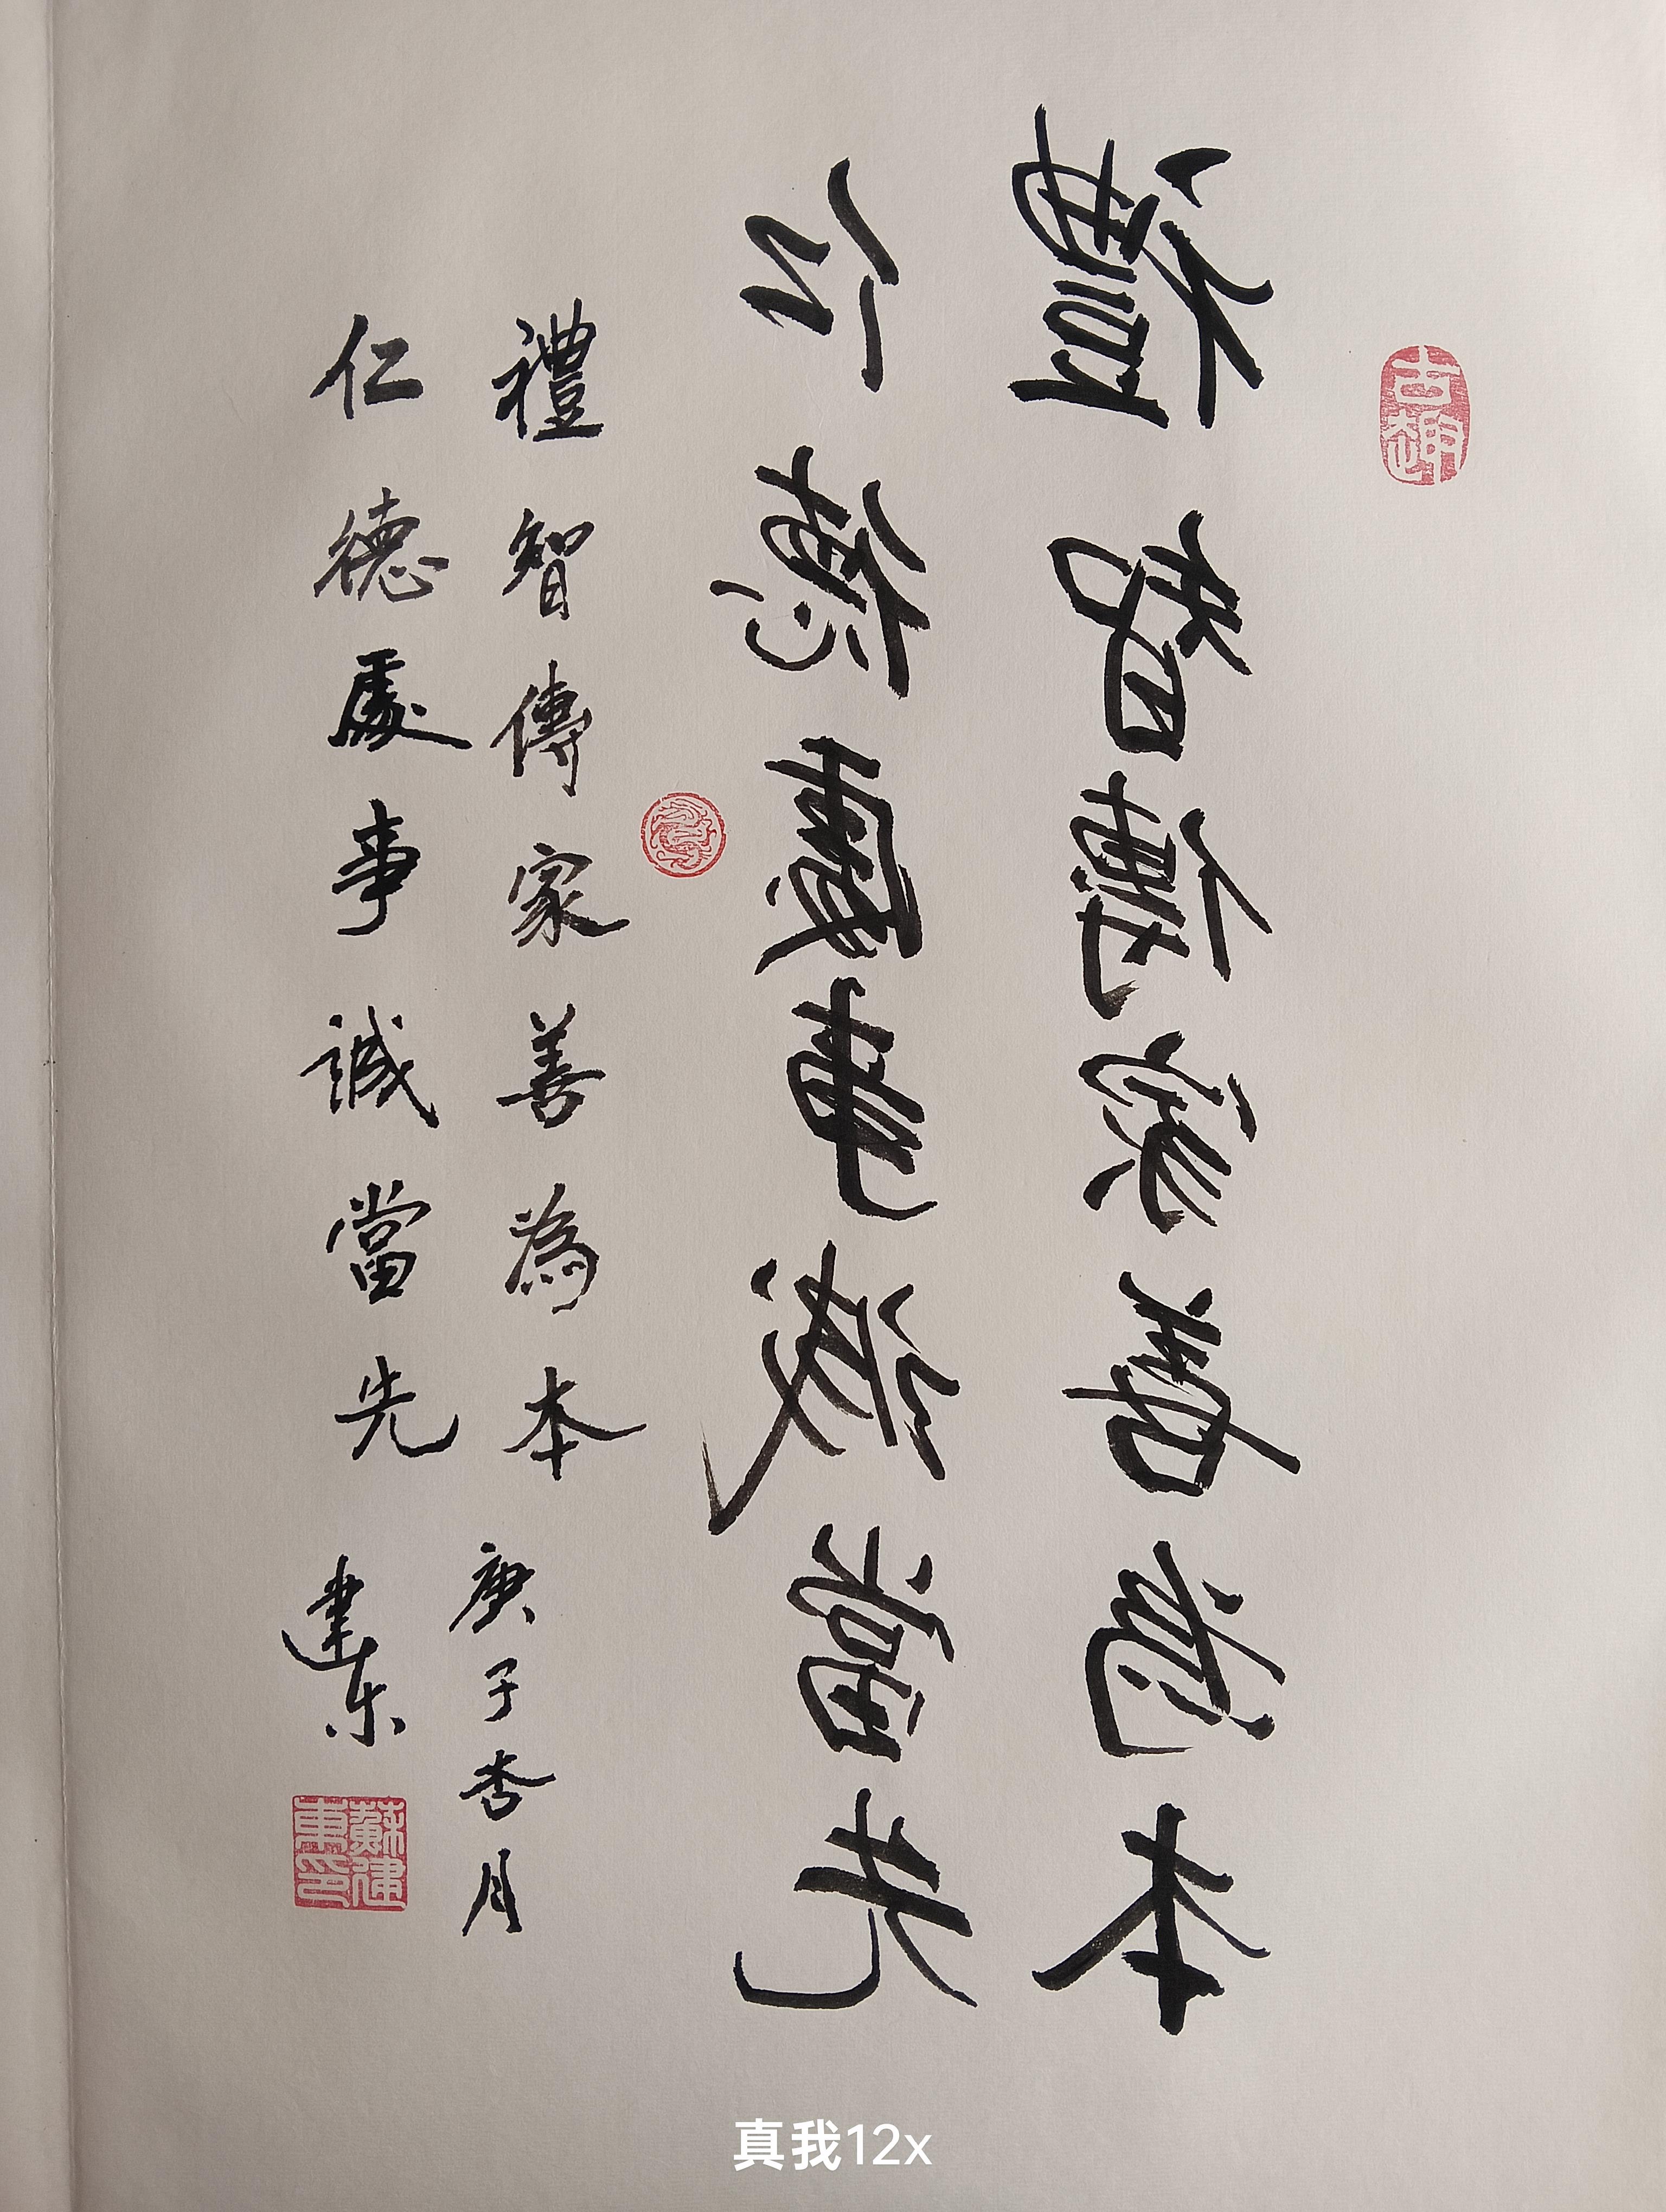 古趣
禮智傳家善為本
仁德處事誠當先
禮智傳家善為本
仁德處事誠當先
庚子杏月
建东
蘇建東印
真我12x